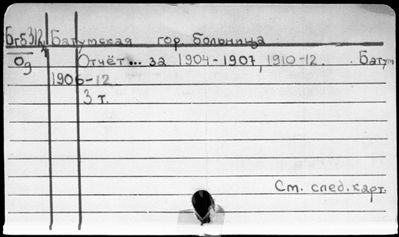 Бг5312 Батумская гор. больница
Од Отчёт... за 1904-1907, 1910-12. Батум
1906-12.
3 т.
См. след. карт.